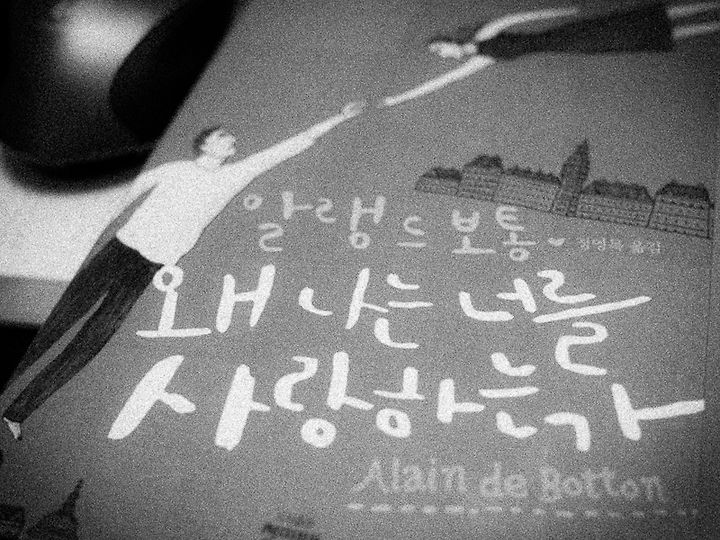 알랭 드 보통
정영목 옮김
왜 나는 너를
사랑하는가
Alain de Botton